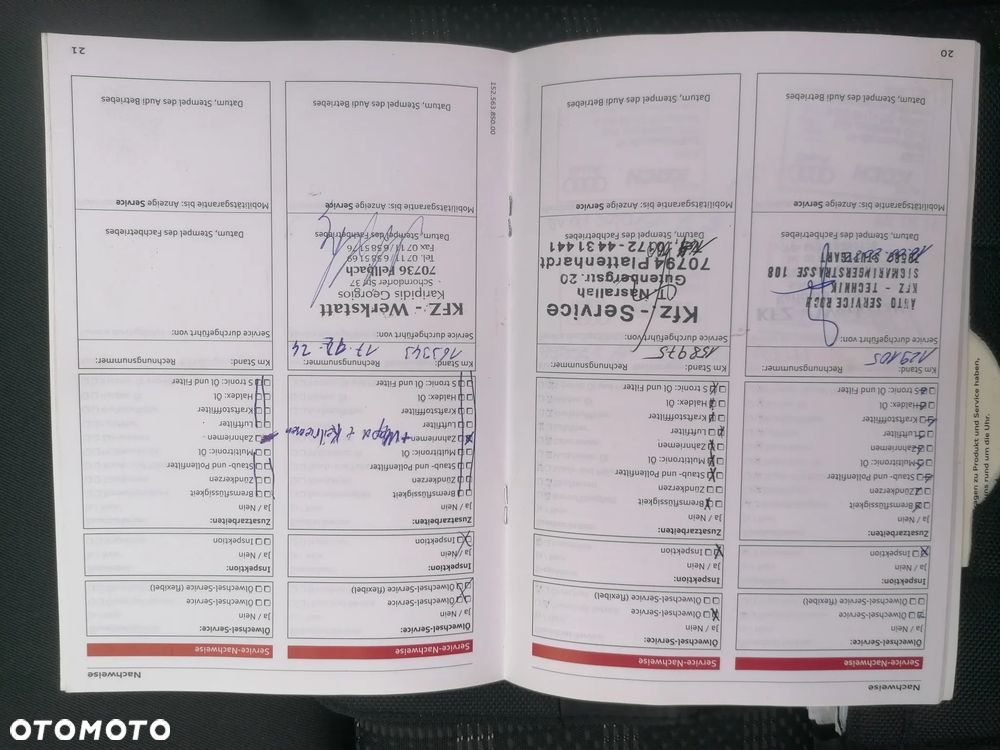 Nachweise
Service-Nachweise
Ölwechsel-Service:
Ja / Nein
Ölwechsel-Service
Ölwechsel-Service (flexibel)
Inspektion:
Ja / Nein
Inspektion
Zusatzarbeiten:
Ja / Nein
Bremsflüssigkeit
Zündkerzen
Staub- und Pollenfilter
Multitronic: Öl
Zahnriemen
Luftfilter
Kraftstofffilter
Haldex: Öl
S tronic: Öl und Filter
Km Stand:
129105
Service durchgeführt von:
AUTO SERVICE
KFZ - TECHNIK
SIGMARINGERSTRASSE 108
STUTTGART
Datum, Stempel des Fachbetriebes
Mobilitätsgarantie bis: Anzeige Service
Datum, Stempel des Audi Betriebes
20
Service-Nachweise
Ölwechsel-Service:
Ja / Nein
Ölwechsel-Service
Ölwechsel-Service (flexibel)
Inspektion:
Ja / Nein
Inspektion
Zusatzarbeiten:
Ja / Nein
Bremsflüssigkeit
Zündkerzen
Staub und Pollenfilter
Multitronic: Öl
Zahnriemen
Luftfilter
Kraftstofffilter
Haldex: Öl
S tronic: Öl und Filter
Km Stand:
158975
Service durchgeführt von:
Kfz - Service
Nasrallah
Gutenbergstr. 20
70794 Plattenhardt
0172 - 4431441
Datum, Stempel des Fachbetriebes
Mobilitätsgarantie bis: Anzeige Service
Datum, Stempel des Audi Betriebes
152.563.850.00
Nachweise
Service-Nachweise
Ölwechsel-Service:
Ja / Nein
Ölwechsel-Service
Ölwechsel-Service (flexibel)
Inspektion:
Ja / Nein
Inspektion
Zusatzarbeiten:
Ja / Nein
Bremsflüssigkeit
Zündkerzen
Staub- und Pollenfilter
Multitronic: Öl
Zahnriemen + Wapu + Keilriemen
Luftfilter
Kraftstofffilter
Haldex: Öl
S tronic: Öl und Filter
Km Stand: Rechnungsnummer:
163343
Service durchgeführt von:
KFZ - Werkstatt
Karipidis Georgios
Schorndorfer Str 37
70736 Fellbach
Tel. 0711 / 6385169
Fax 0711 / 6585176
Datum, Stempel des Fachbetriebes
Mobilitätsgarantie bis: Anzeige Service
Datum, Stempel des Audi Betriebes
Service-Nachweise
Ölwechsel-Service:
Ja / Nein
Ölwechsel-Service
Ölwechsel-Service (flexibel)
Inspektion:
Ja / Nein
Inspektion
Zusatzarbeiten:
Ja / Nein
Bremsflüssigkeit
Zündkerzen
Staub- und Pollenfilter
Multitronic: Öl
Zahnriemen
Luftfilter
Kraftstofffilter
Haldex: Öl
S tronic: Öl und Filter
Km Stand: Rechnungsnummer:
Service durchgeführt von:
Datum, Stempel des Fachbetriebes
Mobilitätsgarantie bis: Anzeige Service
Datum, Stempel des Audi Betriebes
21
agen zu Produkt und Service haben,
ns rund um die Uhr.
OTOMOTO